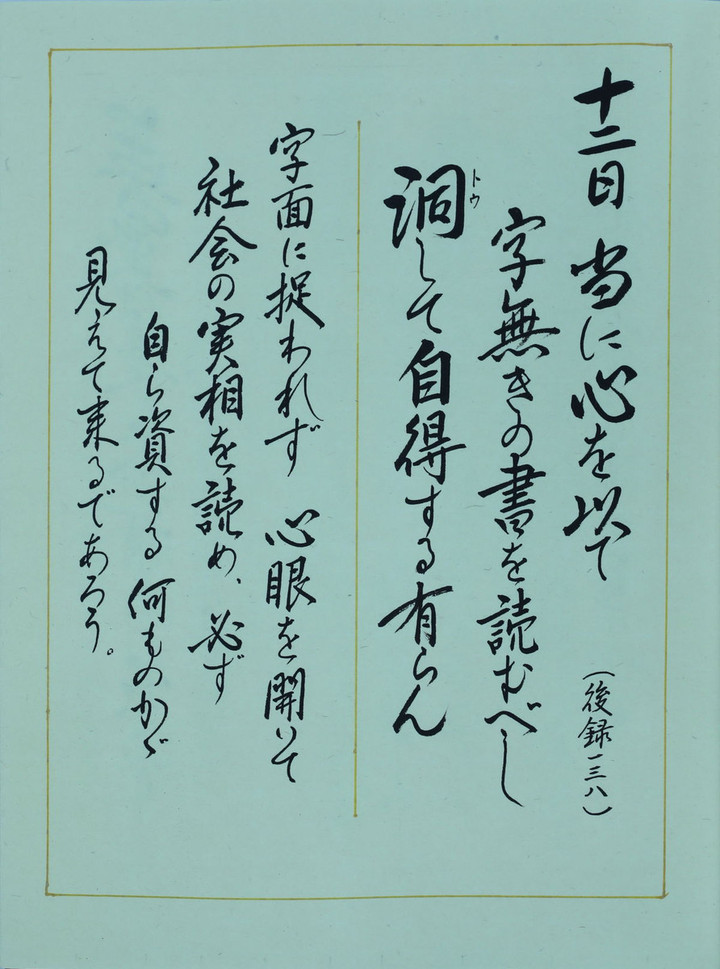 十二日 当に心を以て
(後録一三八)
字無きの書を読むべし
詷して自得する有らん
トウ
字面に捉われず 心眼を開いて
社会の実相を読め、必ず
自ら資する何ものかゞ
見えて来るであろう。